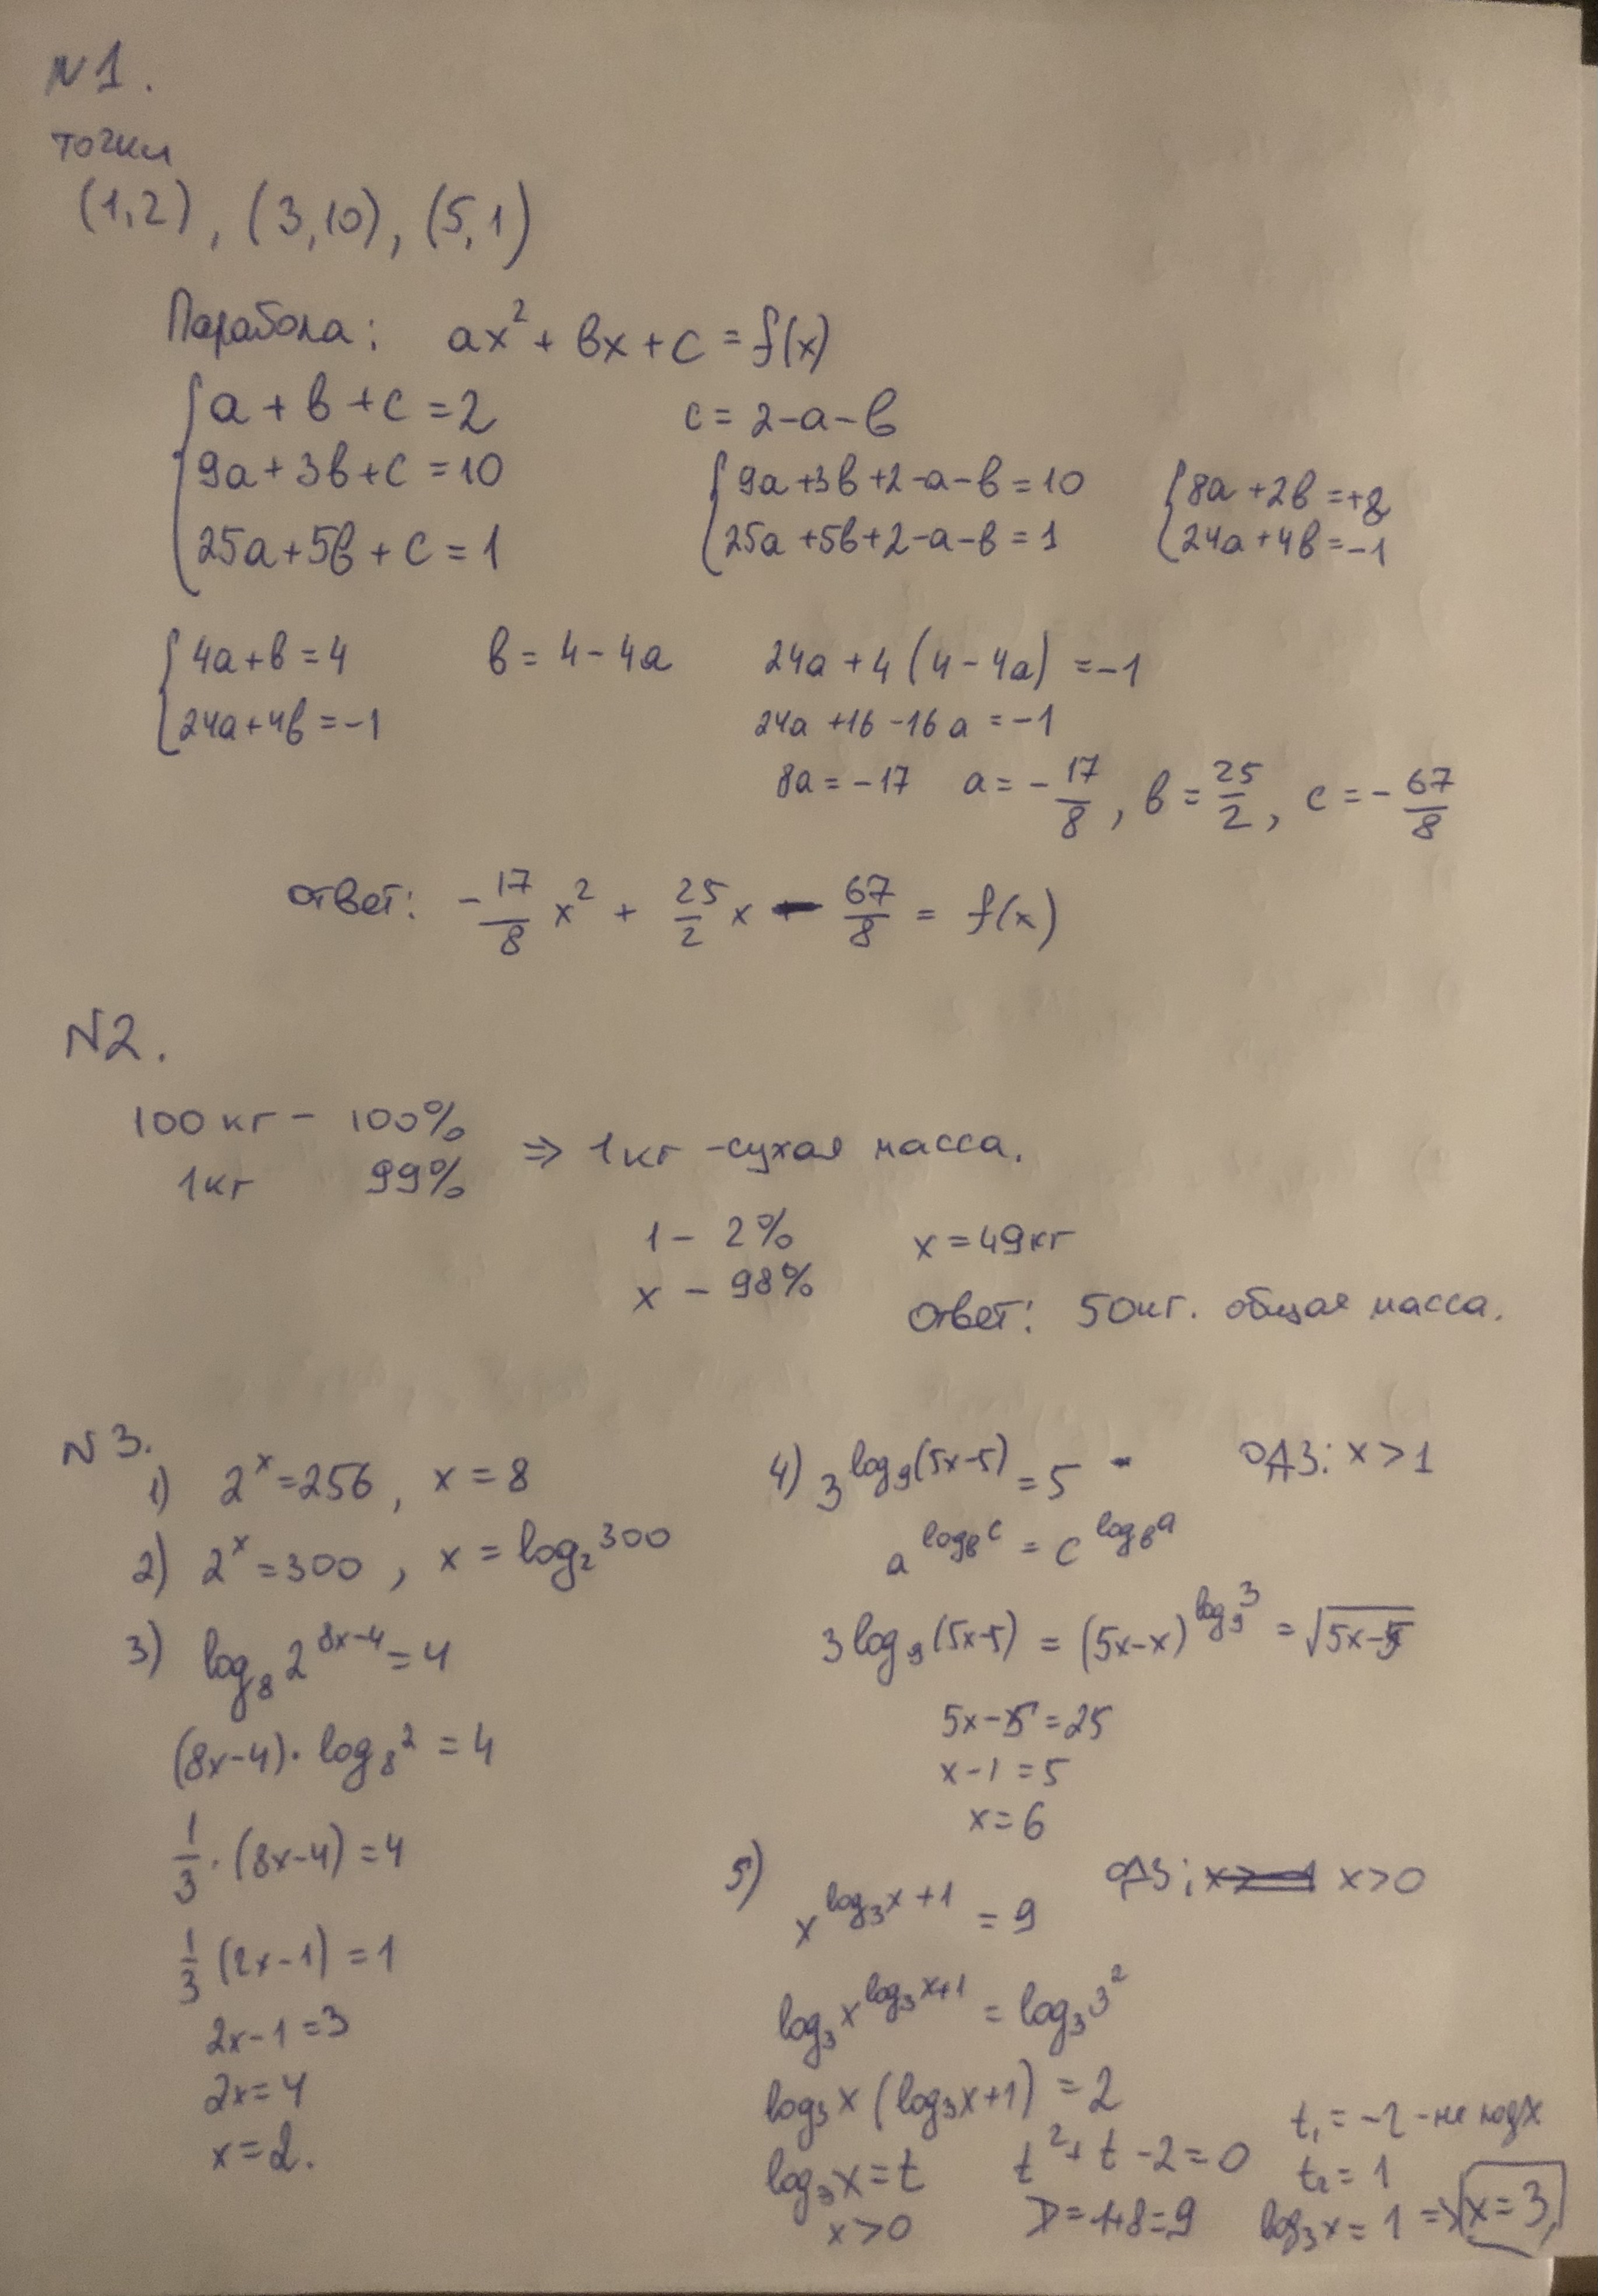 N1.
точки
(1,2), (3,10), (5,1)
Парабола: ax² + bx + c = f(x)
{a + b + c = 2
9a + 3b + c = 10
25a + 5b + c = 1
c = 2-a-b
{9a+3b+2-a-b=10
25a+5b+2-a-b=1
{8a+2b=+8
24a+4b=-1
{4a+b=4
24a+4b=-1
b = 4-4a
24a+4(4-4a)=-1
24a+16-16a=-1
8a=-17 a=-17/8, b=25/2, c=-67/8
ответ: -17/8 x² + 25/2 x - 67/8 = f(x)
N2.
100 кг - 100%
1кг 99%
⇒ 1кг -сухая масса.
1 - 2%
x - 98%
x = 49кг
ответ: 50кг. общая масса.
N3.
1) 2^x=256, x=8
2) 2^x=300, x=log₂300
3) log₈2^(8x-4)=4
(8x-4)·log₈2=4
1/3·(8x-4)=4
1/3(2x-1)=1
2x-1=3
2x=4
x=2.
4) 3^(log₉(5x-5))=5 - ОДЗ: x>1
a^(log_b c) = c^(log_b a)
3log₉(5x-5) = (5x-x)^(log₉3) = √(5x-5)
5x-5=25
x-1=5
x=6
5) x^(log₃x+1) = 9 ОДЗ: x>0
log₃x^(log₃x+1) = log₃3²
log₃x(log₃x+1)=2
log₃x=t
x>0
t²+t-2=0
D=1+8=9
t₁=-2-не подх
t₂=1
log₃x=1 ⇒ x=3,